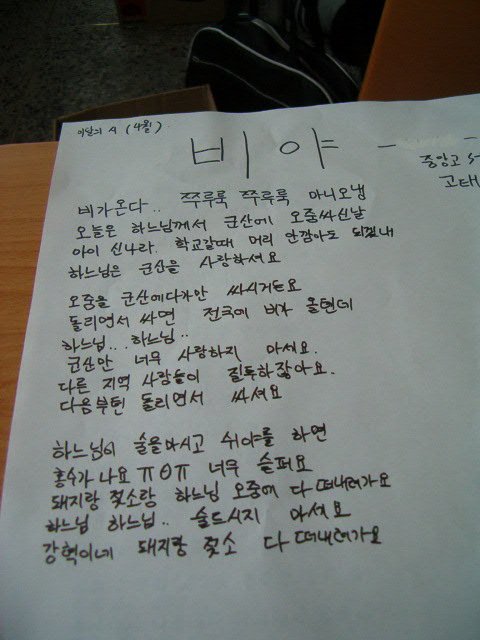 이달의 시 (4월)
비 야 -
중앙고
고태
비가온다.. 쭈루룩 쭈루룩 마니오냄
오늘은 하느님께서 군산에 오줌싸신날
아이 신나라. 학교갈때 머리 안깜아도 되겠내
하느님은 군산을 사랑하셔요
오줌을 군산에다가만 싸시거든요
돌리면서 싸면 전국에 비가 올텐데
하느님.. 하느님..
군산만 너무 사랑하지 마세요.
다른 지역 사람들이 질투하잖아요.
다음부턴 돌리면서 싸셔요
하느님이 술을마시고 쉬야를 하면
홍수가 나요 ㅠㅇㅠ 너무 슬퍼요
돼지랑 젖소랑 하느님 오줌에 다 떠내려가요
하느님 하느님.. 술드시지 마셔요
강혁이네 돼지랑 젖소 다 떠내려가요